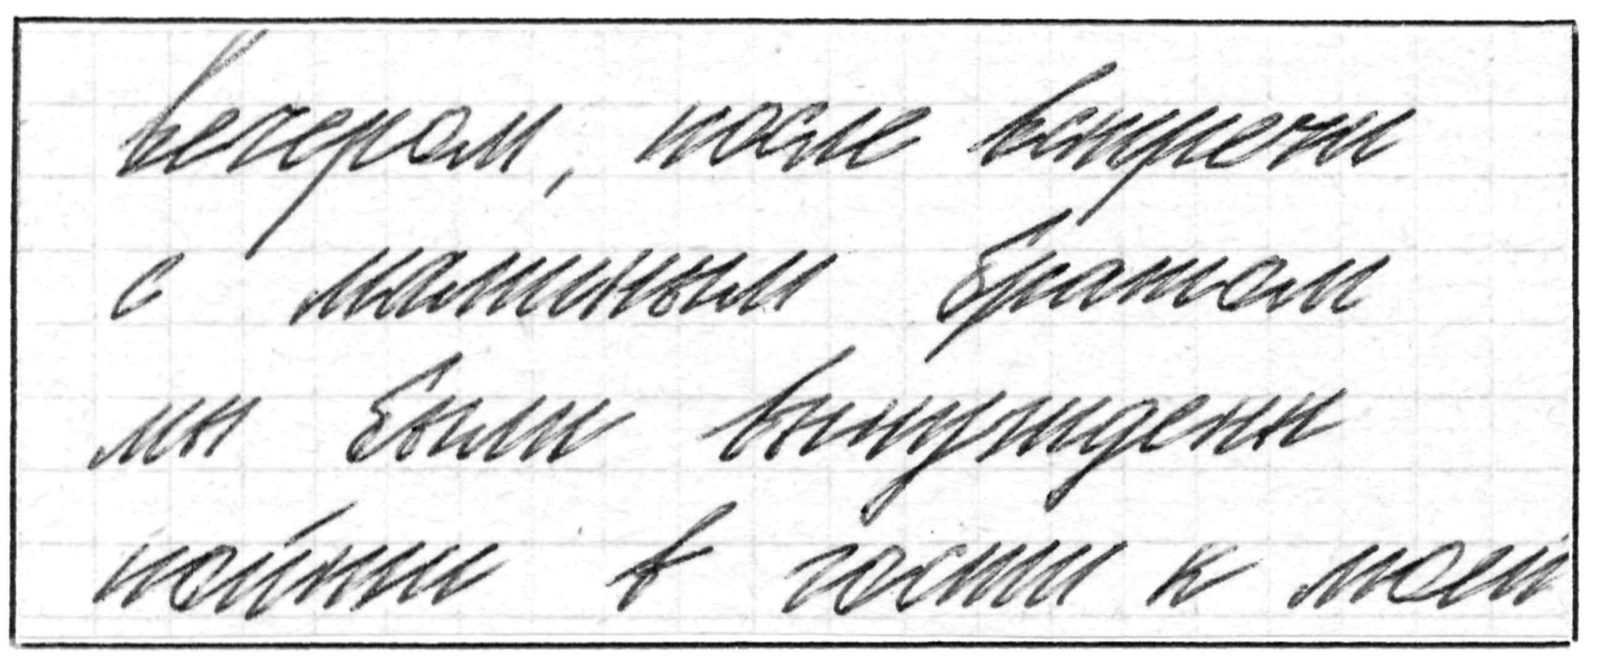 Вечером, после встречи
с маминым братом
мы были вынуждены
пойти в гости к моей